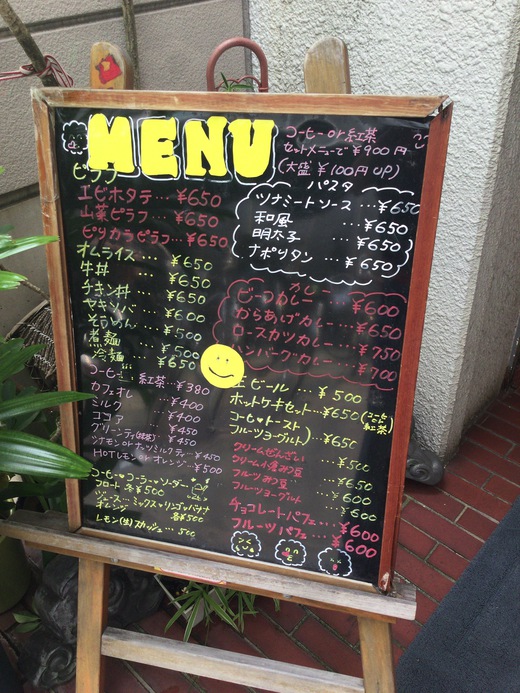 MENU
コーヒー or 紅茶
セットメニューで ¥900円
(大盛 ¥100円UP)
ピラフ
エビホタテ… ¥650
山菜ピラフ… ¥650
ピリカラピラフ… ¥650
オムライス… ¥650
牛丼 … ¥650
チキン丼 … ¥650
ヤキソバ … ¥600
そうめん … ¥500
煮麺 … ¥500
冷麺 … ¥650
パスタ
ツナミートソース … ¥650
和風 … ¥650
明太子 … ¥650
ナポリタン … ¥650
カレー
ビーフカレー … ¥600
からあげカレー… ¥650
ロースカツカレー… ¥750
ハンバーグカレー… ¥700
コーヒー 紅茶 … ¥380
カフェオレ … ¥400
ミルク … ¥400
ココア … ¥450
グリーンティ(抹茶) … ¥450
シナモン or ナッツミルクティ… ¥450
HOTレモン or オレンジ… ¥500
コーヒー♥コーラ♥ソーダー
フロート 各¥500
ジュース…ミックス♥リンゴ♥バナナ
オレンジ 各¥500
レモン(生)スカッシュ… 500
生ビール… ¥500
ホットケーキセット…¥650(コーヒー or 紅茶)
コーヒー♥トースト
フルーツヨーグルト) …¥650
クリームぜんざい …¥500
クリーム小倉みつ豆 … ¥650
フルーツみつ豆 … ¥650
フルーツヨーグルト … ¥600
チョコレートパフェ… ¥600
フルーツパフェ … ¥600